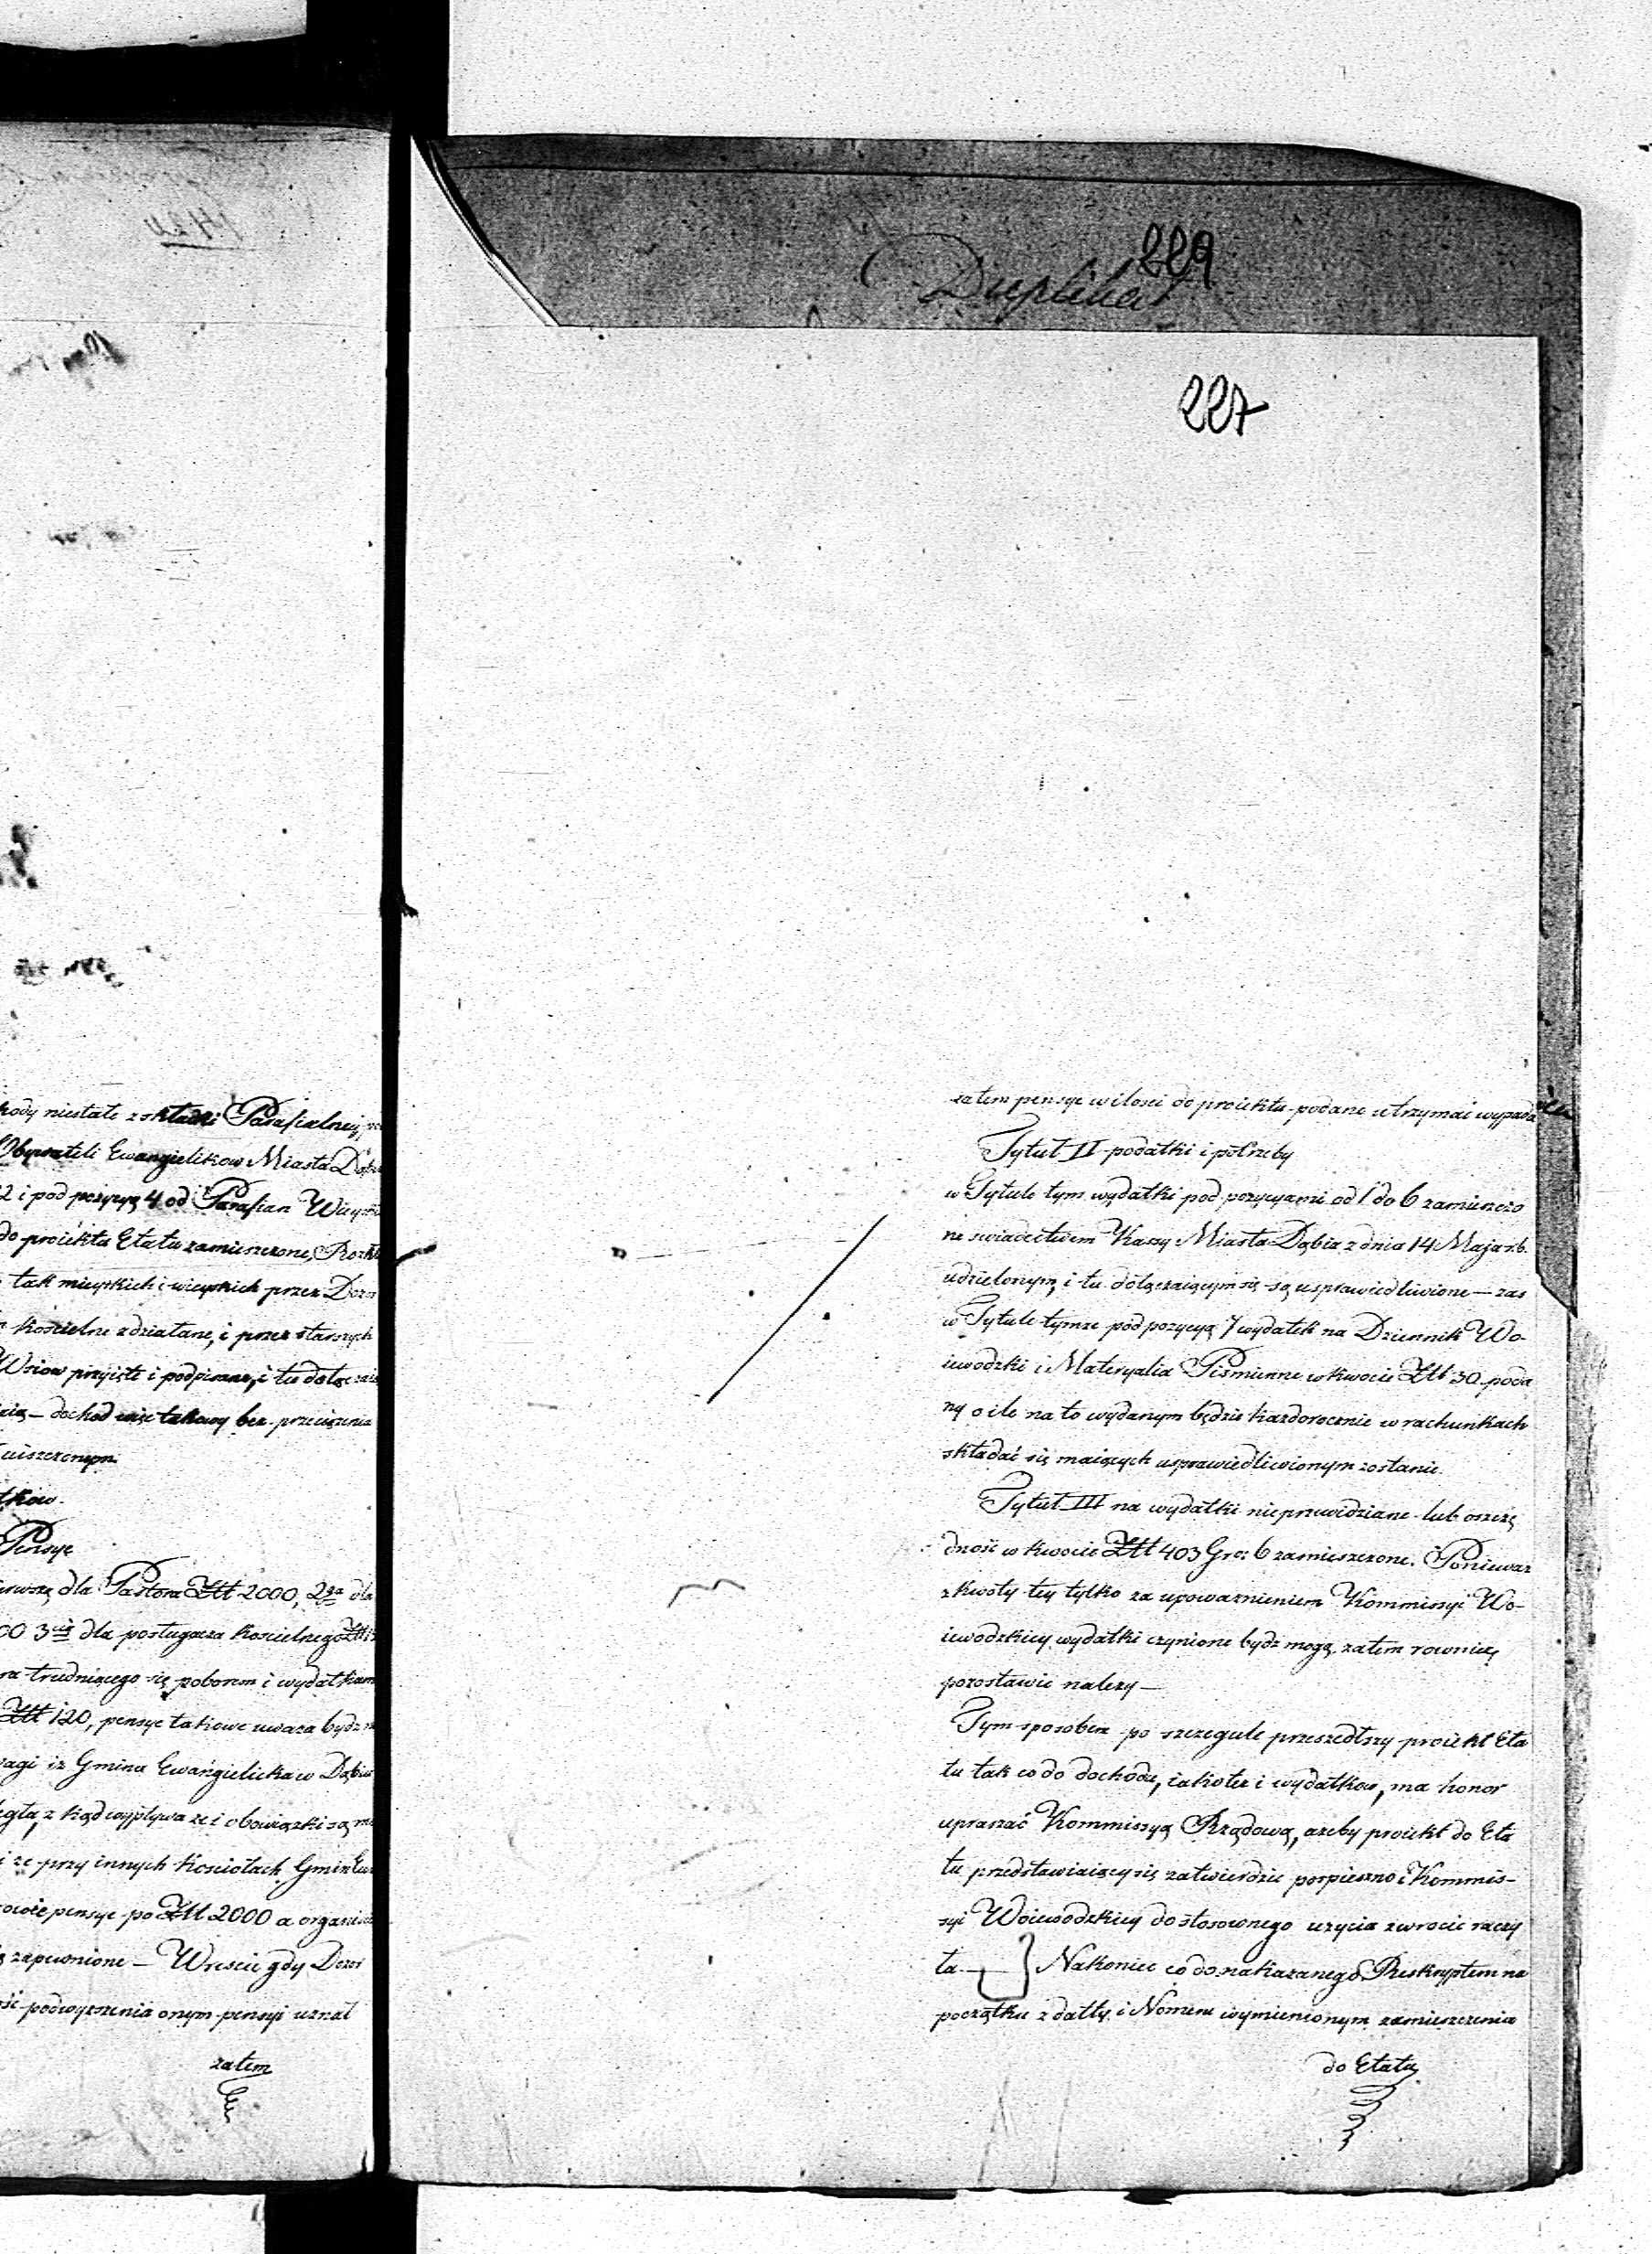 kody niestałe z składki Parafialney
Obywateli Ewangelikow Miasta Dąbia
2 i pod pozycyą 4 od Parafian Wieyskich
do proiektu Etatu zamieszczone,
tak mieyskich i wieyskich przez Dozor
Kościelne zdziałane, i przez starszych
Wsiow przyięte i podpisane, i tu dołącza
dochod więc takowy bez przeciążenia
uiszczonym
tkow.
Pensye
pierwszą dla Pastora Złt 2000, 2gą dla
00 3cią dla posługacza Koscielnego Złt
ra trudniącego się poborem i wydatkam
Złt 120, pensye takowe uważa bydź
wagi iż Gmina Ewangielicka w Dąbiu
egła, z kąd wypływa że i obowiązki są
i że przy innych Kościołach Gmin
pensye po Złt 2000 a organis
zapewnione — Wrescie gdy Dozor
podwyższenia onym pensyi uznał
zatem
Duplikat
229
227
zatem pensye w ilości do proiektu podane utrzymać wypada
Tytuł II podatki i potrzeby
w Tytule tym wydatki pod pozycyami od 1 do 6 zamieszczo
ne swiadectwem Kassy Miasta Dąbia z dnia 14 Maja r.b.
udzielonym, i tu dołączaiącym się są usprawiedliwione — zas
w Tytule tymże pod pozycyą 7 wydatek na Dziennik Wo-
iewodzki i Materyalia Pismienne w kwocie Złt 30 poda
ny o ile na to wydanym będzie każdorocznie w rachunkach
składać się maiących usprawiedliwionym zostanie.
Tytuł III na wydatki nieprzewidziane lub oszczę
dność w kwocie Złt 403 Gro: 6 zamieszczone. Ponieważ
z kwoty tey tylko za upoważnieniem Kommissyi Wo-
iewodzkiey wydatki czynione bydź mogą, zatem rownież
pozostawić należy —
Tym sposobem po szczegule przeszedłszy proiekt Eta
tu tak co do dochodu, iakoteż i wydatkow, ma honor
upraszać Kommissyą Rządową, ażeby proiekt do Eta
tu przedstawiaiący się zatwierdzić pospieszno i Kommis-
syi Woiewodzkiey do stosownego użycia zwrocić raczy
ła. — Nakoniec co do nakazanego Reskryptem na
początku z datty i Nomeru wymienionym zamieszczenia
do Etatu